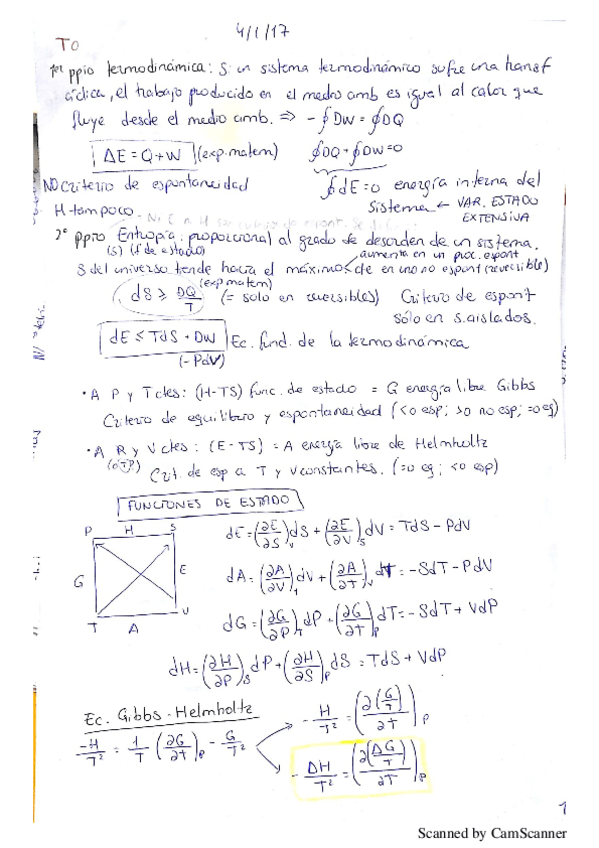 4/1/17
T0
1er ppio termodinámica: Si un sistema termodinámico sufre una transf
cíclica, el trabajo producido en el medio amb es igual al calor que
fluye desde el medio amb. ⇒ -∮DW = ∮DQ
ΔE = Q+W (exp. matem) ∮DQ + ∮DW = 0
NO criterio de espontaneidad ∮dE = 0 energía interna del
sistema ← VAR. ESTADO
EXTENSIVA
H tampoco.
2º ppio Entropía proporcional al grado de desorden de un sistema.
(S) (f de estado) aumenta en un proc. espont
S del universo tiende hacia el máximo cte en uno no espont (reversible)
(exp matem)
dS ≥ DQ/T (= solo en reversibles) Criterio de espont
sólo en s. aislados.
dE ≤ TdS + DW Ec. fund. de la termodinámica
(-PdV)
· A P y T ctes: (H-TS) func. de estado = G energía libre Gibbs
Criterio de equilibrio y espontaneidad (<0 esp; >0 no esp; =0 eq)
· A R y V ctes: (E-TS) = A energía libre de Helmholtz
(o TP) Crit. de esp a T y V constantes. (=0 eq; <0 esp)
FUNCIONES DE ESTADO
P H S
G E
T A V
dE = (∂E/∂S)V dS + (∂E/∂V)S dV = TdS - PdV
dA = (∂A/∂V)T dV + (∂A/∂T)V dT = -SdT - PdV
dG = (∂G/∂P)T dP + (∂G/∂T)P dT = -SdT + VdP
dH = (∂H/∂P)S dP + (∂H/∂S)P dS = TdS + VdP
Ec. Gibbs-Helmholtz
-H/T² = 1/T (∂G/∂T)P - G/T²
-H/T² = (∂(G/T)/∂T)P
-ΔH/T² = (∂(ΔG/T)/∂T)P
1
Scanned by CamScanner